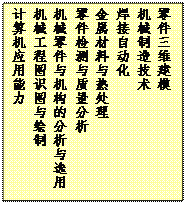 零件三维建模
机械制造技术
焊接自动化
金属材料与热处理
零件检测与质量分析
机械零件与机构的分析与选用
机械工程图识图与绘制
计算机应用能力